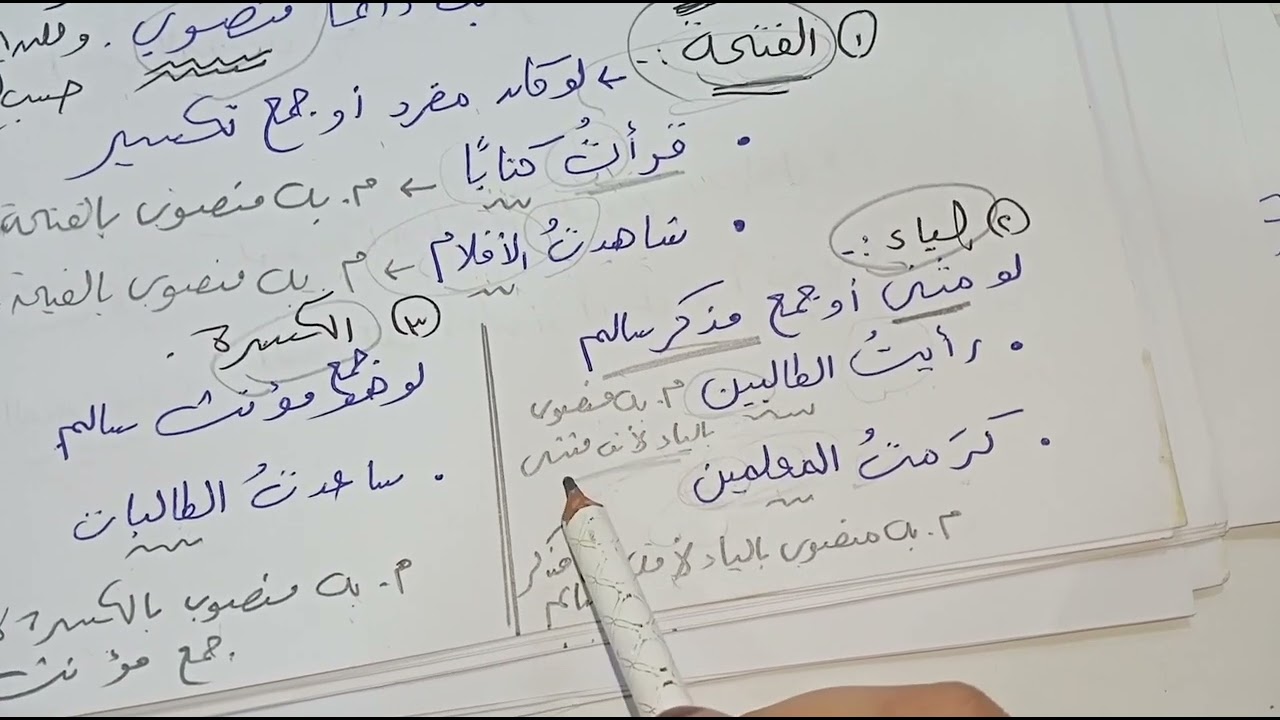 دائمًا منصوب .
حسب
① الفتحة :-
← لو كان مفرد أو جمع تكسير
• قرأتُ كتابًا ← م. به منصوب بالفتحة
• شاهدتُ الأفلام ← م. به منصوب بالفتحة
② الياء :-
لو مثنى أو جمع مذكر سالم
• رأيتُ الطالبين م. به منصوب
بالياء لأنه مثنى
• كرَمتُ المعلمين
م. به منصوب بالياء لأنه مذكر
سالم
③ الكسرة .
لو هو جمع مؤنث سالم
• ساعدتُ الطالبات
م. به منصوب بالكسرة
جمع مؤنث